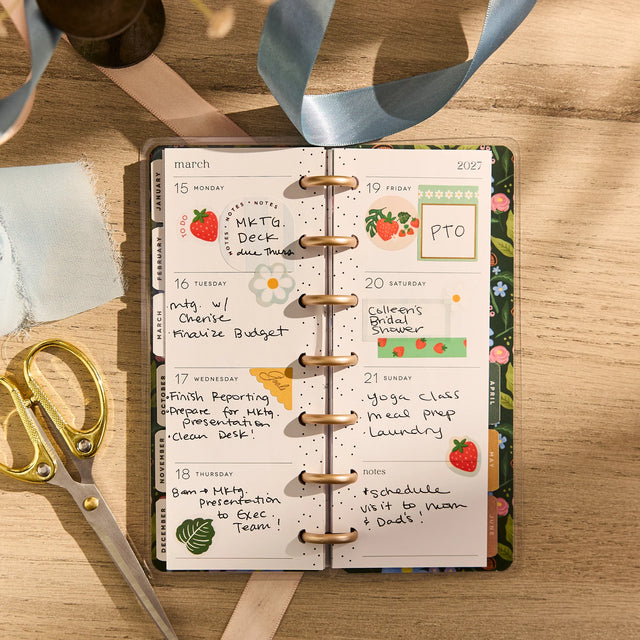 march
15 MONDAY
TO DO
NOTES • NOTES • NOTES • NOTES
MKTG
Deck
due Thurs
16 TUESDAY
mtg. w/
Cherise
Finalize Budget
17 WEDNESDAY
Goals
• Finish Reporting
• Prepare for Mktg.
presentation
• Clean Desk!
18 THURSDAY
8am → Mktg.
Presentation
to Exec.
Team!
2027
19 FRIDAY
PTO
20 SATURDAY
Colleen's
Bridal
Shower
21 SUNDAY
• Yoga class
• meal prep
• Laundry
notes
*schedule
visit to mom
& Dad's!
JANUARY
FEBRUARY
MARCH
OCTOBER
NOVEMBER
DECEMBER
APRIL
MAY
JUNE